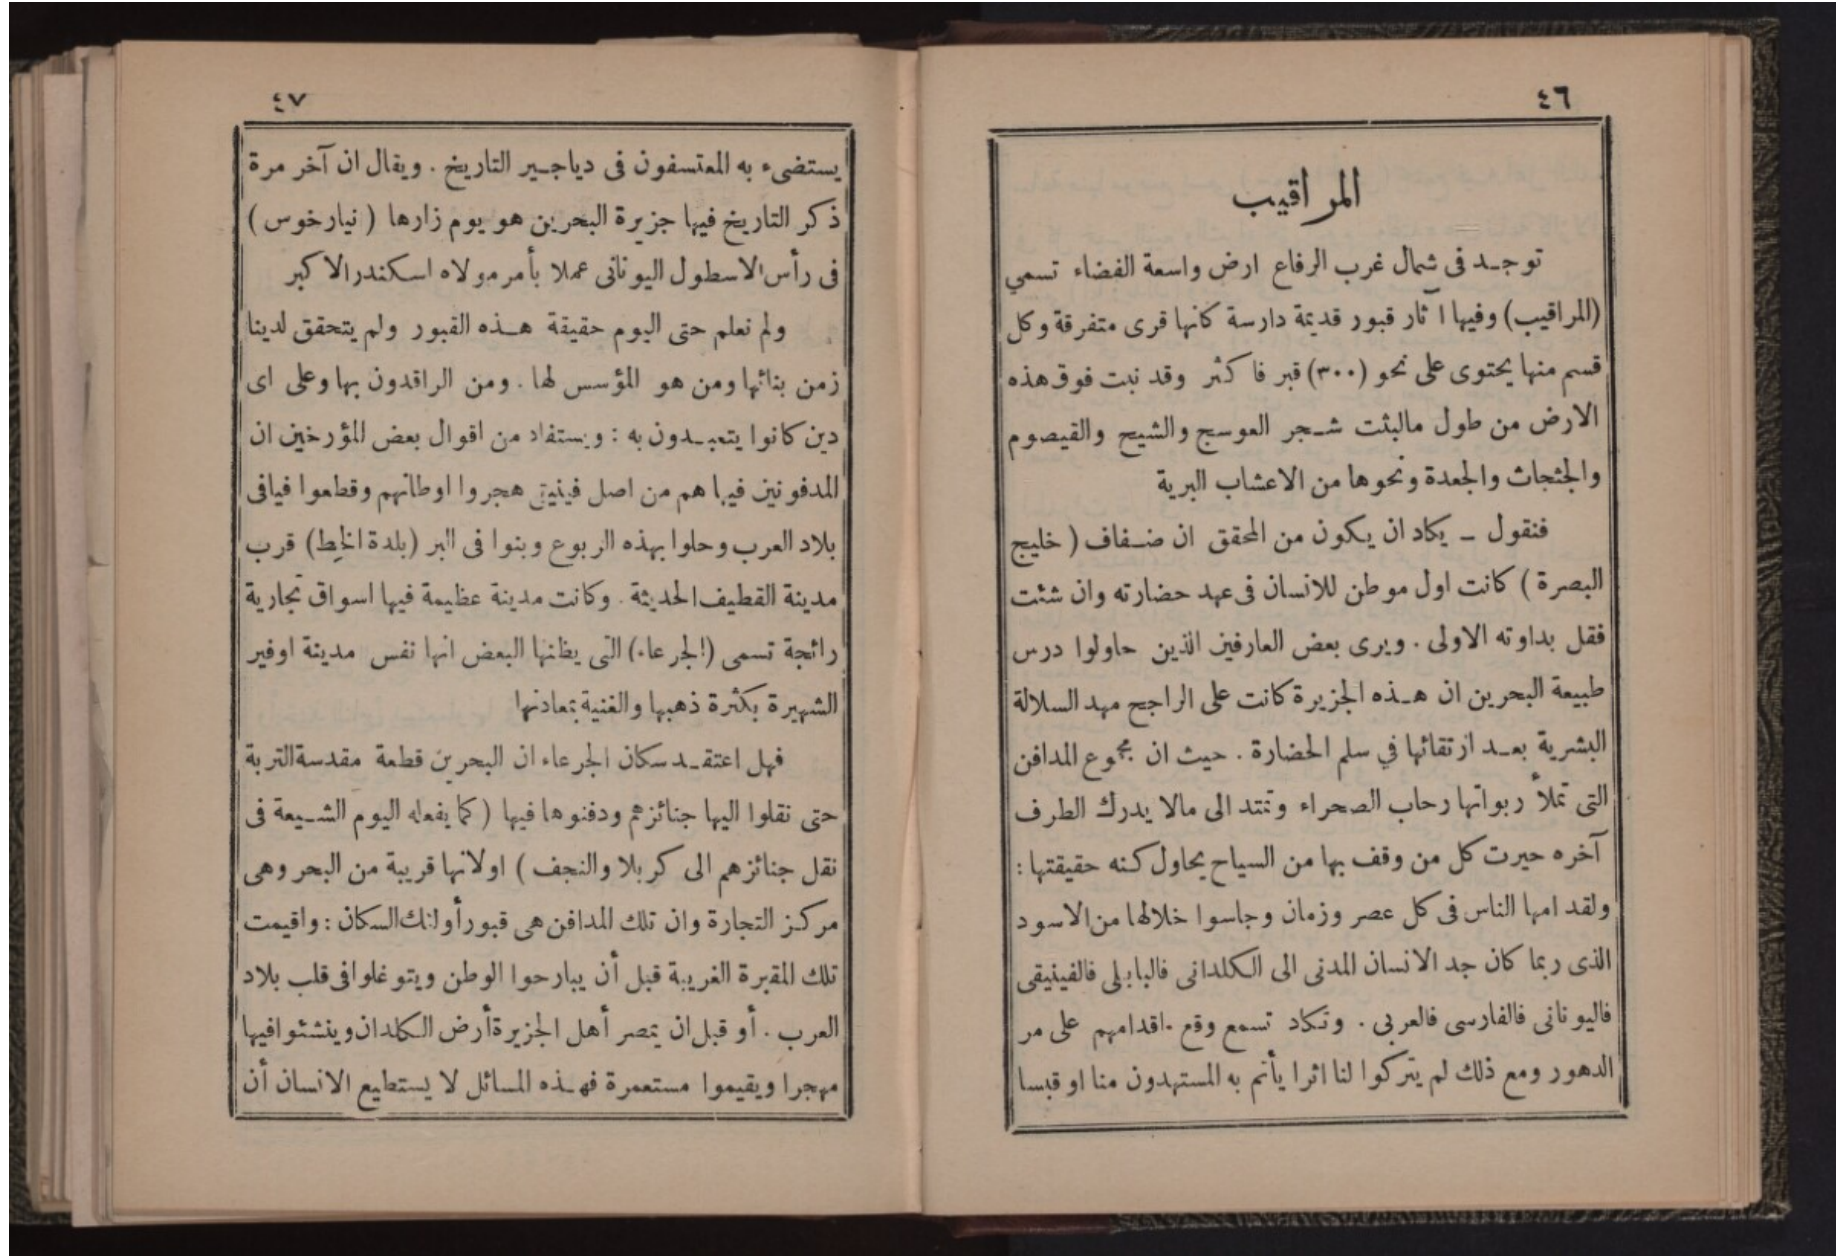 ٤٦
المراقيب
توجد فى شمال غرب الرفاع ارض واسعة الفضاء تسمي
(المراقيب) وفيها آثار قبور قديمة دارسة كانها قرى متفرقة وكل
قسم منها يحتوى على نحو (٣٠٠) قبر فاكثر وقد نبت فوق هذه
الارض من طول مالبثت شجر العوسج والشيح والقيصوم
والجثجاث والجعدة ونحوها من الاعشاب البرية
فنقول ـ يكاد ان يكون من المحقق ان ضفاف ( خليج
البصرة ) كانت اول موطن للانسان فى عهد حضارته وان شئت
فقل بداوته الاولى . ويرى بعض العارفين الذين حاولوا درس
طبيعة البحرين ان هذه الجزيرة كانت على الراجح مهد السلالة
البشرية بعد ارتقائها في سلم الحضارة . حيث ان مجموع المدافن
التى تملأ ربواتها رحاب الصحراء وتمتد الى مالا يدرك الطرف
آخره حيرت كل من وقف بها من السياح يحاول كنه حقيقتها :
ولقد امها الناس فى كل عصر وزمان وجاسوا خلالها من الاسود
الذى ربما كان جد الانسان المدنى الى الكلدانى فالبابلى فالفينيقى
فاليونانى فالفارسى فالعربى . وتكاد تسمع وقع اقدامهم على مر
الدهور ومع ذلك لم يتركوا لنا اثرا يأتم به المستهدون منا او قبسا
٤٧
يستضىء به المعتسفون فى دياجير التاريخ . ويقال ان آخر مرة
ذكر التاريخ فيها جزيرة البحرين هو يوم زارها ( نيارخوس )
فى رأس الاسطول اليونانى عملا بأمر مولاه اسكندر الاكبر
ولم نعلم حتى اليوم حقيقة هذه القبور ولم يتحقق لدينا
زمن بنائها ومن هو المؤسس لها . ومن الراقدون بها وعلى اى
دين كانوا يتعبدون به : ويستفاد من اقوال بعض المؤرخين ان
المدفونين فيها هم من اصل فينيقى هجروا اوطانهم وقطعوا فيافى
بلاد العرب وحلوا بهذه الربوع وبنوا فى البر (بلدة الخِط) قرب
مدينة القطيف الحديثة . وكانت مدينة عظيمة فيها اسواق تجارية
رائجة تسمى (الجرعاء) التى يظنها البعض انها نفس مدينة اوفير
الشهيرة بكثرة ذهبها والغنية بمعادنها
فهل اعتقد سكان الجرعاء ان البحرين قطعة مقدسة التربة
حتى نقلوا اليها جنائزهم ودفنوها فيها ( كما يفعله اليوم الشيعة فى
نقل جنائزهم الى كربلا والنجف ) اولانها قريبة من البحر وهى
مركز التجارة وان تلك المدافن هى قبور أولئك السكان : واقيمت
تلك المقبرة الغريبة قبل أن يبارحوا الوطن ويتوغلوا فى قلب بلاد
العرب . أو قبل ان يمصر أهل الجزيرة أرض الكلدان وينشئوا فيها
مهجرا ويقيموا مستعمرة فهذه المسائل لا يستطيع الانسان أن